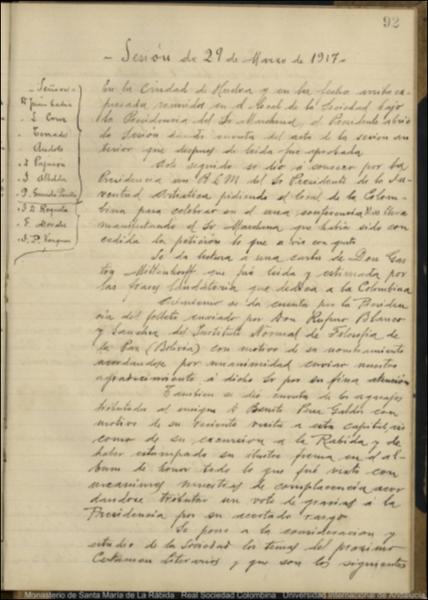 92
- Sesión de 29 de Marzo de 1917 -
Señores
En la Ciudad de Huelva y en la fecha arriba ex-
presada reunida en el local de la Sociedad bajo
la Presidencia del Sr Marchena, el Presidente abrió
la Sesión dando cuenta del acta de la sesion an
terior que despues de leida fué aprobada.
Acto seguido se dió á conocer por la
Presidencia un B.L.M del Sr Presidente de la Ju-
ventud Artistica pidiendo el local de la Colom-
bina para celebrar en el una conferencia
manifestando el Sr Marchena que habia sido con
cedida la peticion
Se da lectura á una carta de Don Gas
que fué leida y estimada por
las frases laudatorias que dedica a la Colombina
Asimismo se da cuenta por la Presiden
cia del folleto enviado por Don Rufino Blanco
y Sanchez del Instituto Normal de Filosofia de
de la Paz (Bolivia) con motivo de su nombramiento
acordandose por unanimidad enviar nuestro
agradecimiento á dicho Sr por su fina atención
Tambien se dió cuenta de los agasajos
tributados al insigne D Benito Perez Galdós con
motivo de su reciente visita a esta capital, asi
como de su excursion a la Rabida y de
haber estampado su ilustre firma en el al-
bum de honor todo lo que fué visto con
unanimes muestras de complacencia acor
dandose tributar un voto de gracias á la
Presidencia por su acertado rasgo
Se pone a la consideracion y
estudio de la Sociedad los temas del proximo
Certamen literario y que son los siguientes
Monasterio de Santa María de La Rábida Real Sociedad Colombina Universidad Internacional de Andalucía